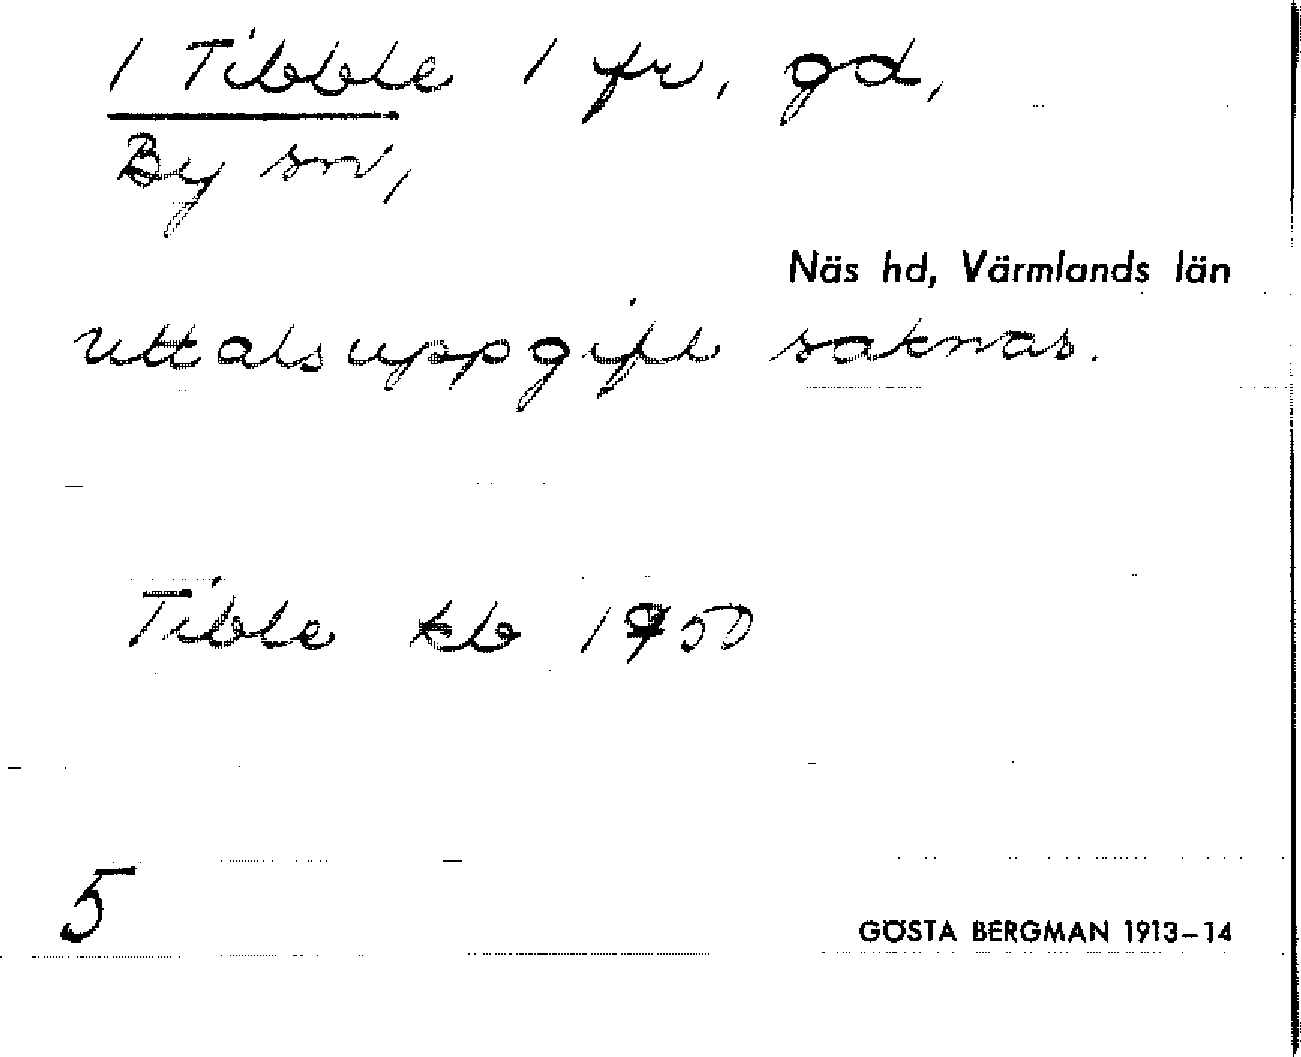 / Tibble / fr, gd,
By sn,
Näs hd, Värmlands län
uttalsuppgift saknas.
Tible kb 1950
5
GÖSTA BERGMAN 1913–14